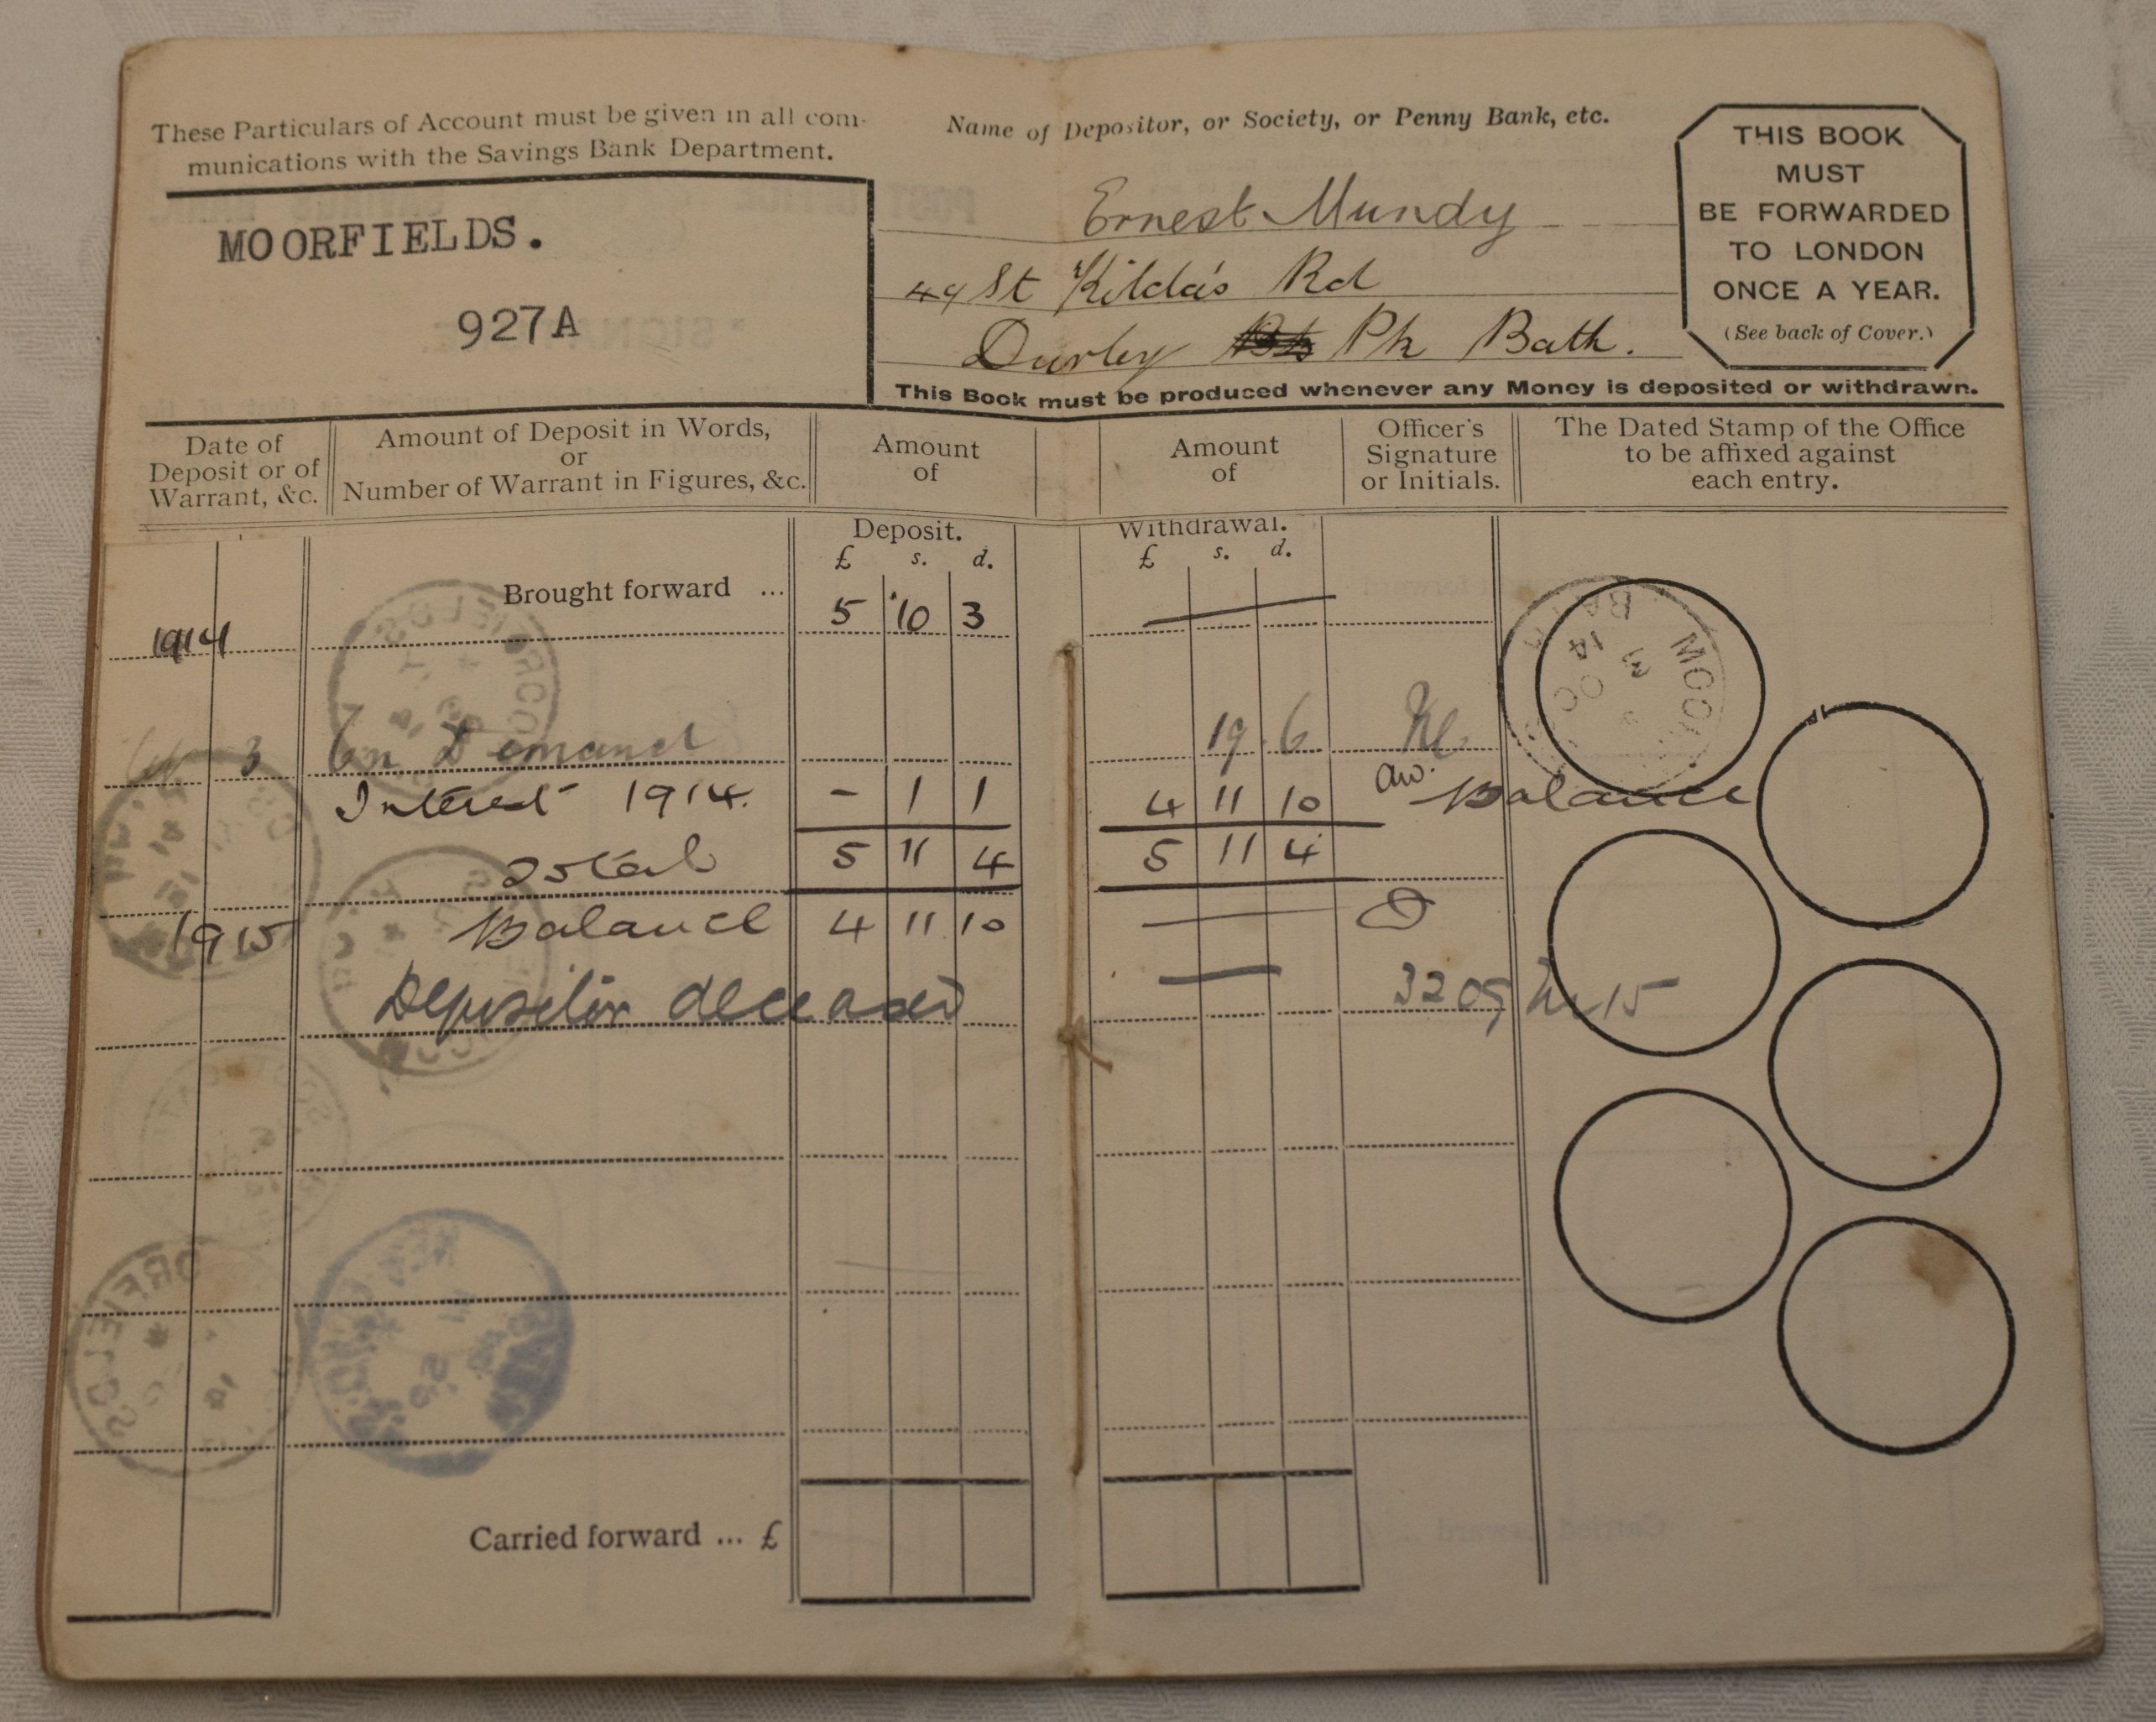 These Particulars of Account must be given in all com-
munications with the Savings Bank Department.
MOORFIELDS.
927A
Name of Depositor, or Society, or Penny Bank, etc.
Ernest Mundy
49 St Kilda's Rd
Durley Pk Bath.
THIS BOOK
MUST
BE FORWARDED
TO LONDON
ONCE A YEAR.
(See back of Cover.)
This Book must be produced whenever any Money is deposited or withdrawn.
Date of
Deposit or of
Warrant, &c.
Amount of Deposit in Words,
or
Number of Warrant in Figures, &c.
Amount
of
Amount
of
Officer's
Signature
or Initials.
The Dated Stamp of the Office
to be affixed against
each entry.
Deposit.
Withdrawal.
£ s. d.
£ s. d.
Brought forward ... 5 10 3
1914
3 On Demand 19 6
MOOR BATH 3 OC 14
Interest 1914. - 1 1 4 11 10 aw. Balance
Total 5 11 4 5 11 4
1915 Balance 4 11 10
Depositor deceased 3209 15
Carried forward ... £